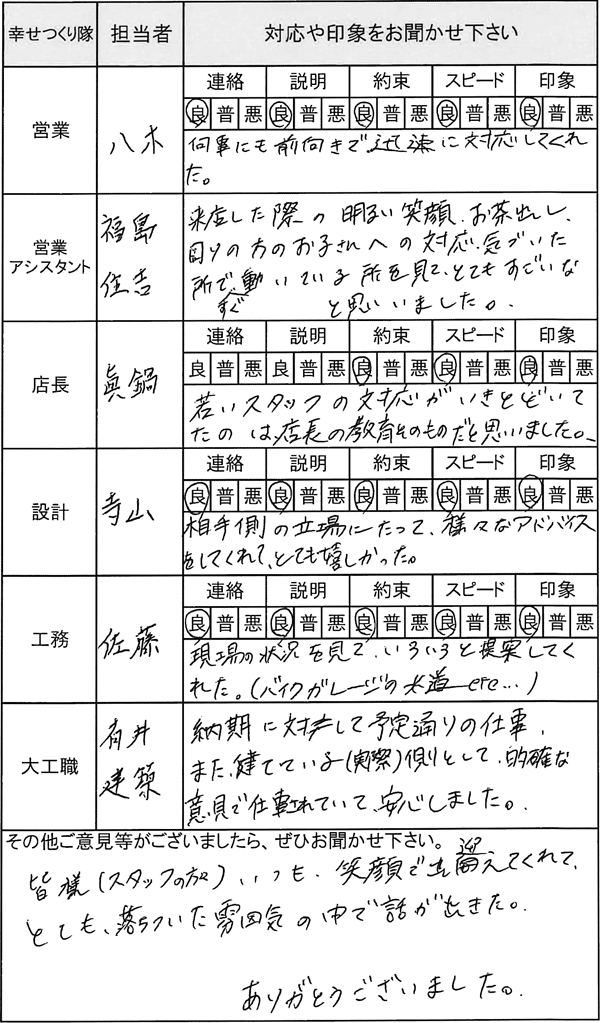 幸せつくり隊 担当者 対応や印象をお聞かせ下さい
営業 八木
連絡 説明 約束 スピード 印象
良 普 悪 良 普 悪 良 普 悪 良 普 悪 良 普 悪
何事にも前向きで迅速に対応してくれ
た。
営業アシスタント 福島 住吉
来店した際の明るい笑顔、お茶出し、
回りの方のお子さんへの対応、気づいた
所で、すぐ動いている所を見て、とてもすごいな
と思いいました。
店長 眞鍋
連絡 説明 約束 スピード 印象
良 普 悪 良 普 悪 良 普 悪 良 普 悪 良 普 悪
若いスタッフの対応がいきとどいて
たのは、店長の教育そのものだと思いました。
設計 寺山
連絡 説明 約束 スピード 印象
良 普 悪 良 普 悪 良 普 悪 良 普 悪 良 普 悪
相手側の立場にたって、様々なアドバイス
をしてくれて、とても嬉しかった。
工務 佐藤
連絡 説明 約束 スピード 印象
良 普 悪 良 普 悪 良 普 悪 良 普 悪 良 普 悪
現場の状況を見て、いろいろと提案してく
れた。(バイクガレージの水道 etc…)
大工職 有井 建築
納期に対して予定通りの仕事、
また、建てている(実際)側として、的確な
意見で仕事されていて、安心しました。
その他ご意見等がございましたら、ぜひお聞かせ下さい。
皆様(スタッフの方)いつも、笑顔で出迎えてくれて、
とても、落ちついた雰囲気の中で話が出きた。
ありがとうございました。